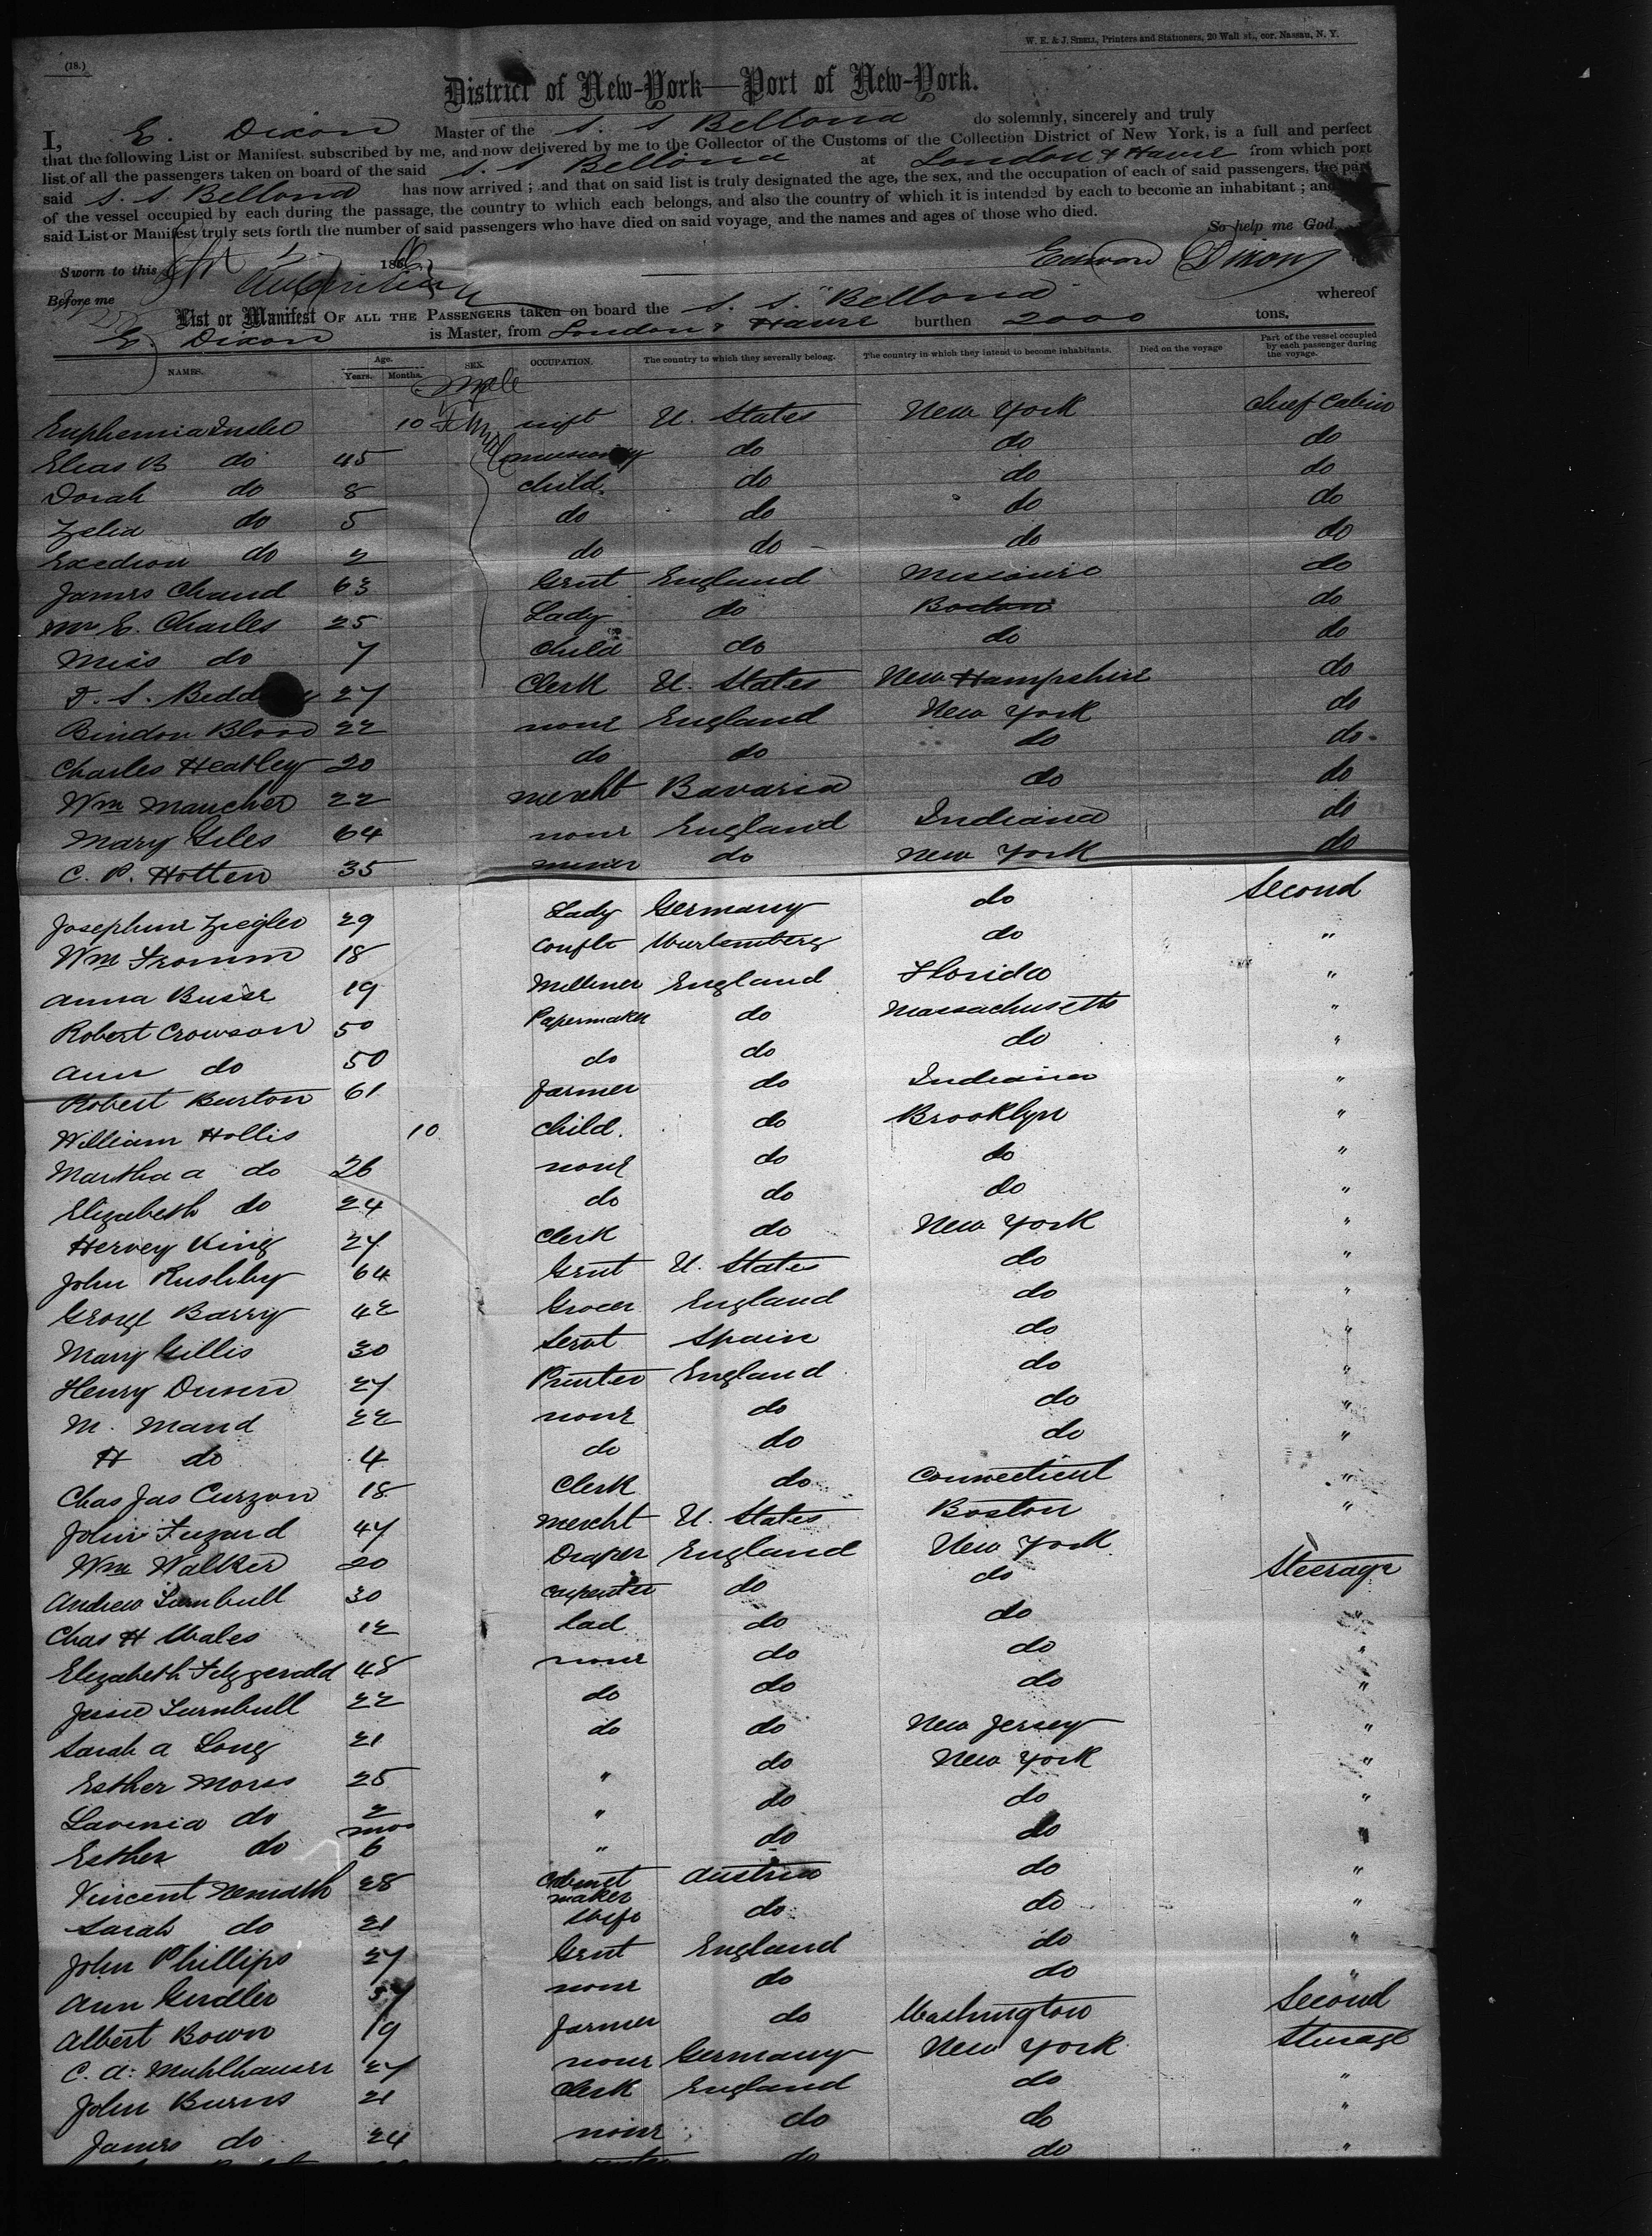 (18.)
W. E. & J. SIBELL, Printers and Stationers, 20 Wall st., cor. Nassau, N. Y.
District of New-York—Port of New-York.
I, E. Dixon Master of the S. S Bellona do solemnly, sincerely and truly
that the following List or Manifest, subscribed by me, and now delivered by me to the Collector of the Customs of the Collection District of New York, is a full and perfect
list of all the passengers taken on board of the said S. S Bellona at London & Havre from which port
said S. S. Bellona has now arrived; and that on said list is truly designated the age, the sex, and the occupation of each of said passengers, the part
of the vessel occupied by each during the passage, the country to which each belongs, and also the country of which it is intended by each to become an inhabitant; and
said List or Manifest truly sets forth the number of said passengers who have died on said voyage, and the names and ages of those who died.
So help me God.
Sworn to this 186
Edward Dixon
Before me
List or Manifest OF ALL THE PASSENGERS taken on board the S. S. "Bellona" whereof
E. Dixon is Master, from London & Havre burthen 2000 tons.
NAMES. Age. Years. Months. SEX. OCCUPATION. The country to which they severally belong. The country in which they intend to become inhabitants. Died on the voyage Part of the vessel occupied by each passenger during the voyage.
Male
Euphemia 10 inft U. States New York Chief Cabin
Elias B do 45 do do do
Dorah do 8 child. do do do
Zelia do 5 do do do do
do 2 do do do do
James Chand 63 Gent England Missouri do
Mrs E. Charles 25 Lady do Boston do
Miss do 7 Child do do do
T. S. 27 Clerk U. States New Hampshire do
Bindon Blood 22 none England New York do
Charles Heatley 20 do do do do
Wm Mancher 22 mercht Bavaria do do
Mary Giles 64 none England Indiana do
C. P. Hotten 35 miner do New York do
Josephine Ziegler 29 Lady Germany do Second
Wm Fromm 18 Wurtemberg do "
Anna Busse 19 Milliner England Florida "
Robert Crowson 50 Papermaker do Massachusetts "
Ann do 50 do do do "
Robert Burton 61 farmer do Indiana "
William Hollis 10 child. do Brooklyn "
Martha a do 26 none do do "
Elizabeth do 24 do do do "
Hervey King 27 Clerk do New York "
John Rushby 64 Gent U. States do "
George Barry 42 Grocer England do "
Mary Gillis 30 Servt Spain do "
Henry 27 Printer England do "
M. Mand 22 none do do "
H do 4 do do do "
Chas Jas Curzon 18 Clerk do Connecticut "
John 47 mercht U. States Boston "
Wm Walker 20 Draper England New York Steerage
Andrew Turnbull 30 carpenter do do "
Chas H Wales 12 lad do do "
Elizabeth Fitzgerald 48 none do do "
Jessie Turnbull 22 do do do "
Sarah a Long 21 do do New Jersey "
Esther Morss 25 " do New York "
Lavinia do 2 " do do "
Esther do mos 6 " do do "
Vincent 28 Cabinet maker Austria do "
Sarah do 21 Wife do do "
John Phillips 27 Gent England do "
Ann Gerdler 57 none do do "
Albert Bown 19 farmer do Washington Second
C. A. Muhlhauser 27 none Germany New York Steerage
John Burns 21 Clerk England do "
James do 24 none do do "
do do